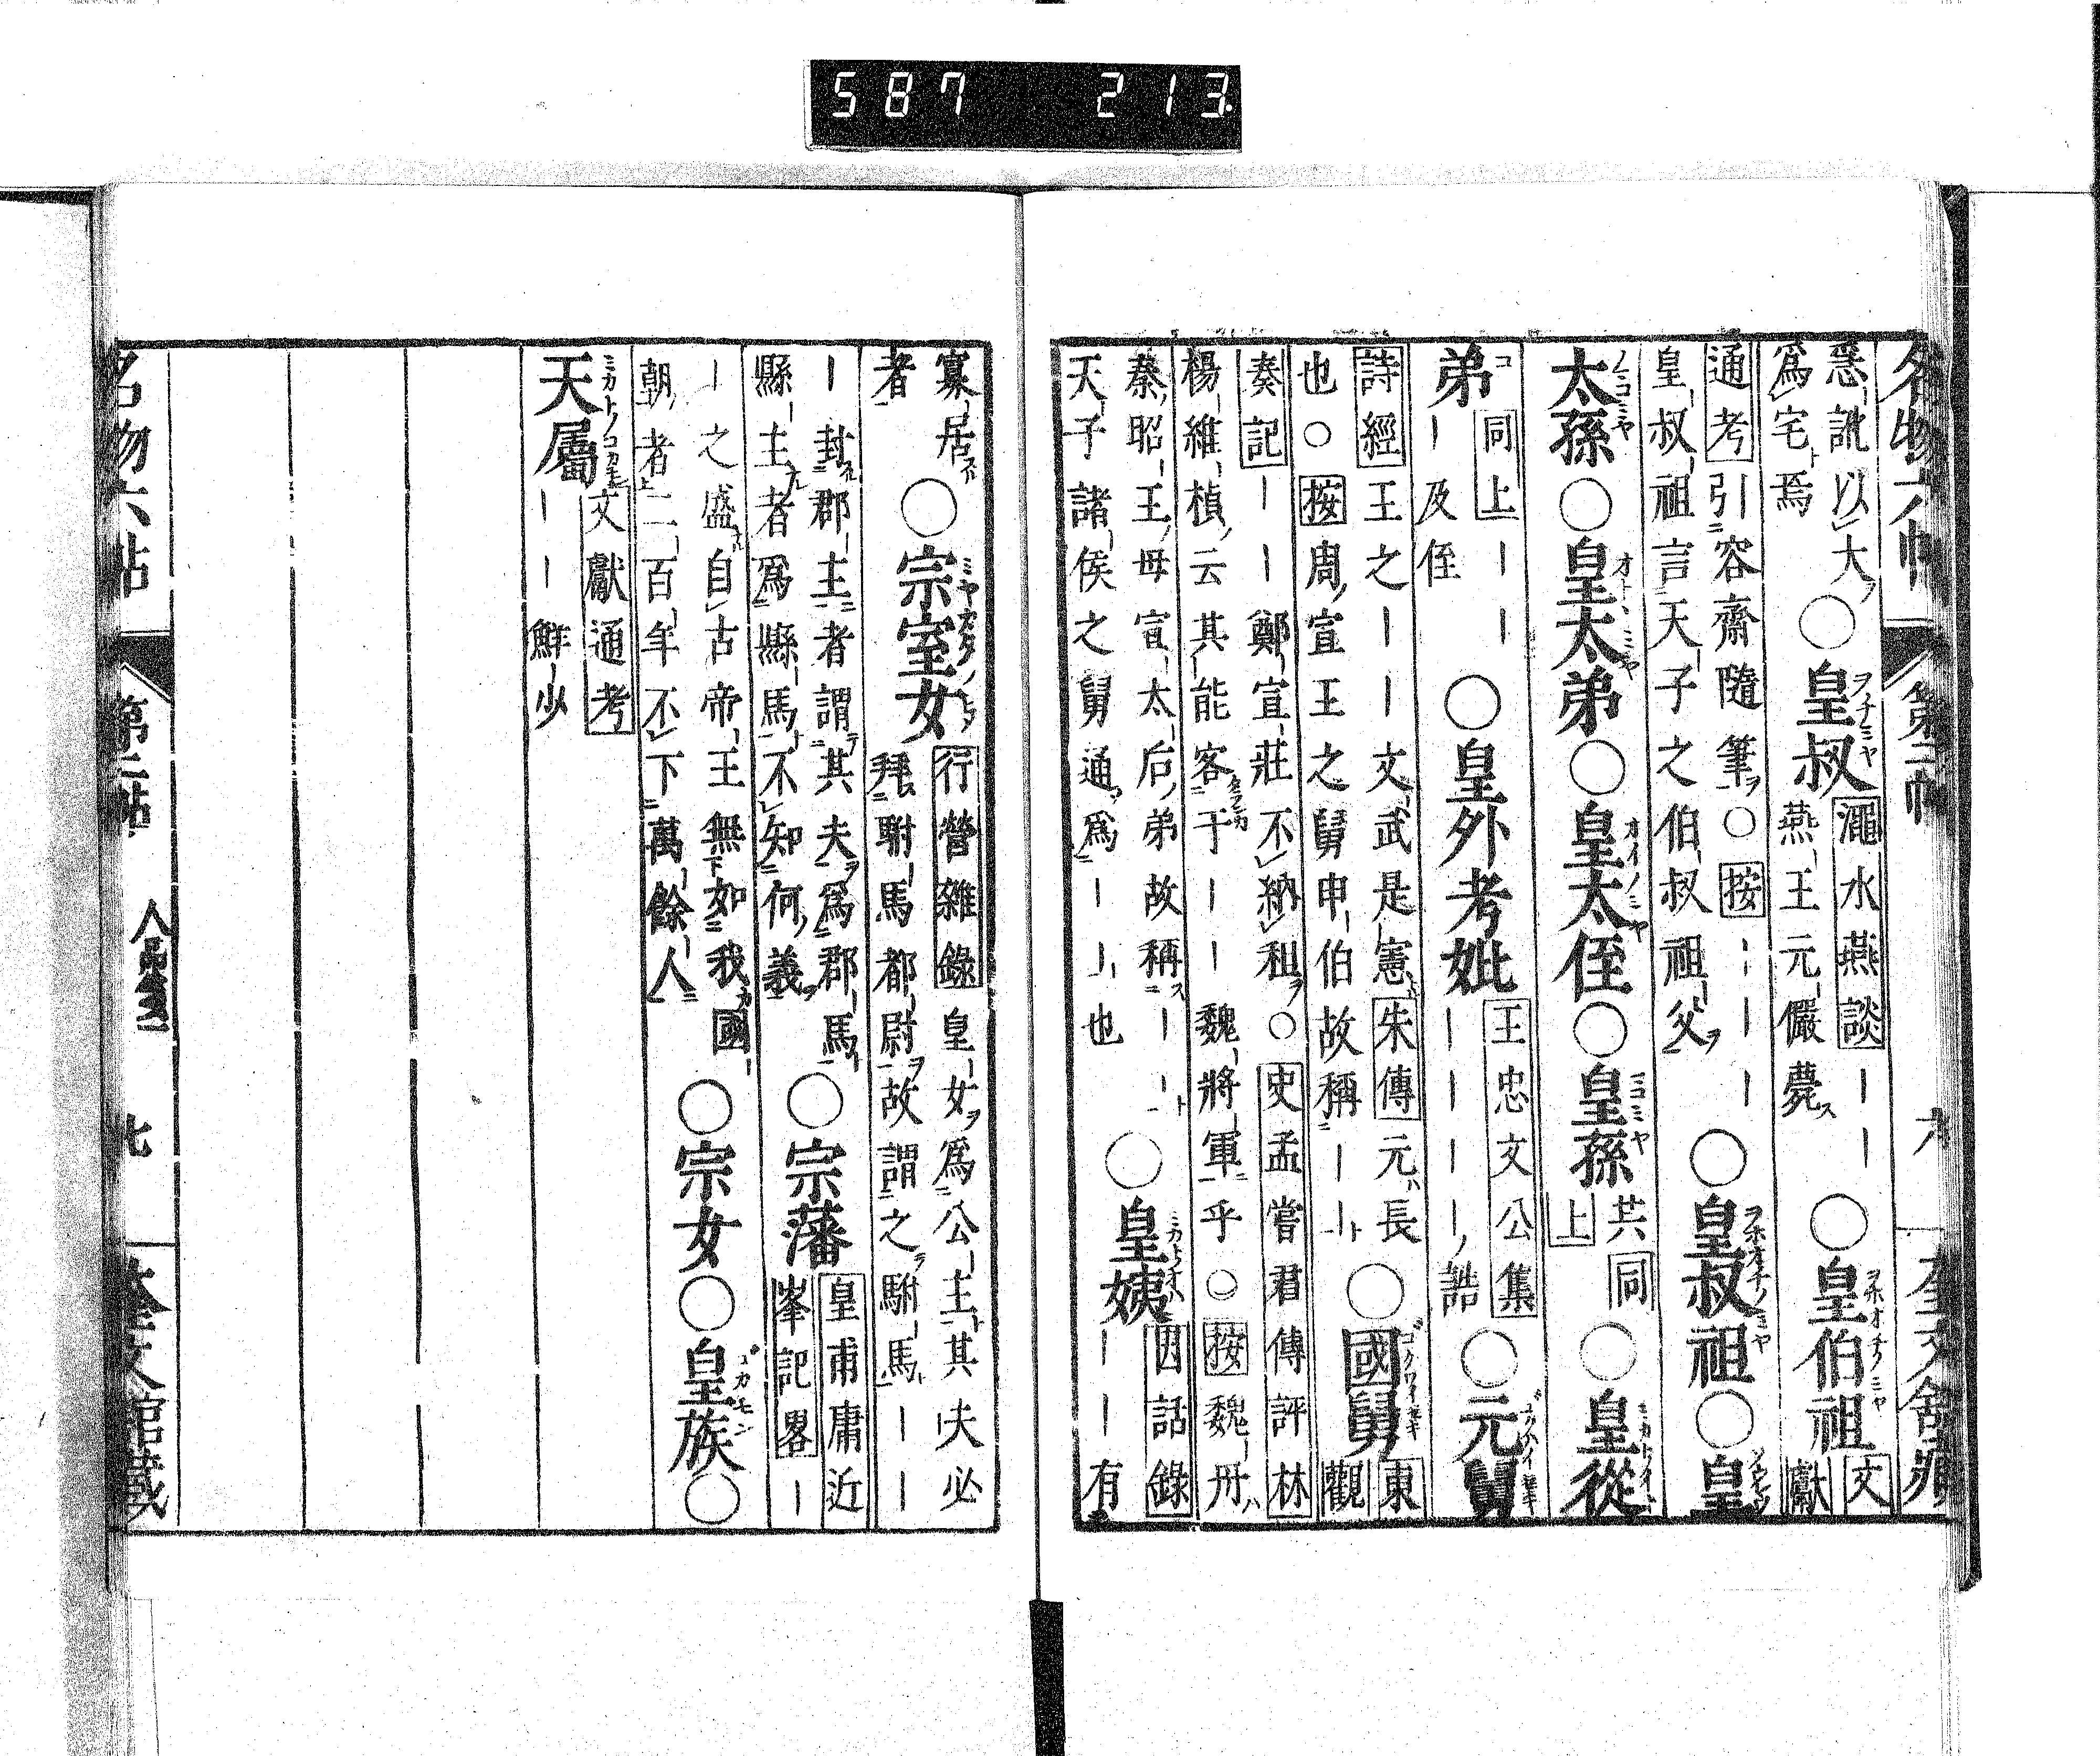 587 213
名物六帖 第二帖 六 奎文館藏
惡訛以大
爲宅焉
○皇叔
澠水燕談――
燕王元儼薨
○皇伯祖
文
獻
通考引容齋隨筆○按―――
皇叔祖言天子之伯叔祖父
○皇叔祖○皇
太孫○皇太弟○皇太侄○皇孫
共同
上
○皇從
弟
同上――
―及侄
○皇外考妣
王忠文公集
――――誥
○元舅
詩經王之――文武是憲朱傳元長
也○按周宣王之舅申伯故稱――
○國舅
東
觀
奏記――鄭宣莊不納租○史孟嘗君傳評林
楊維楨云其能客于――魏將軍乎○按魏冉
秦昭王母宣太后弟故稱――
天子諸侯之舅通爲――也
○皇姨
因話錄
――有
寡居
者
○宗室女
行營雜錄皇女爲公主其夫必
拜駙馬都尉故謂之駙馬――
―封郡主者謂其夫爲郡馬
縣主者爲縣馬不知何義
○宗藩
皇甫庸近
峯記畧―
―之盛自古帝王無如我國
朝者二百年不下萬餘人
○宗女○皇族○
天屬
文獻通考
――鮮少
名物六帖 第二帖 人品 七 奎文館藏